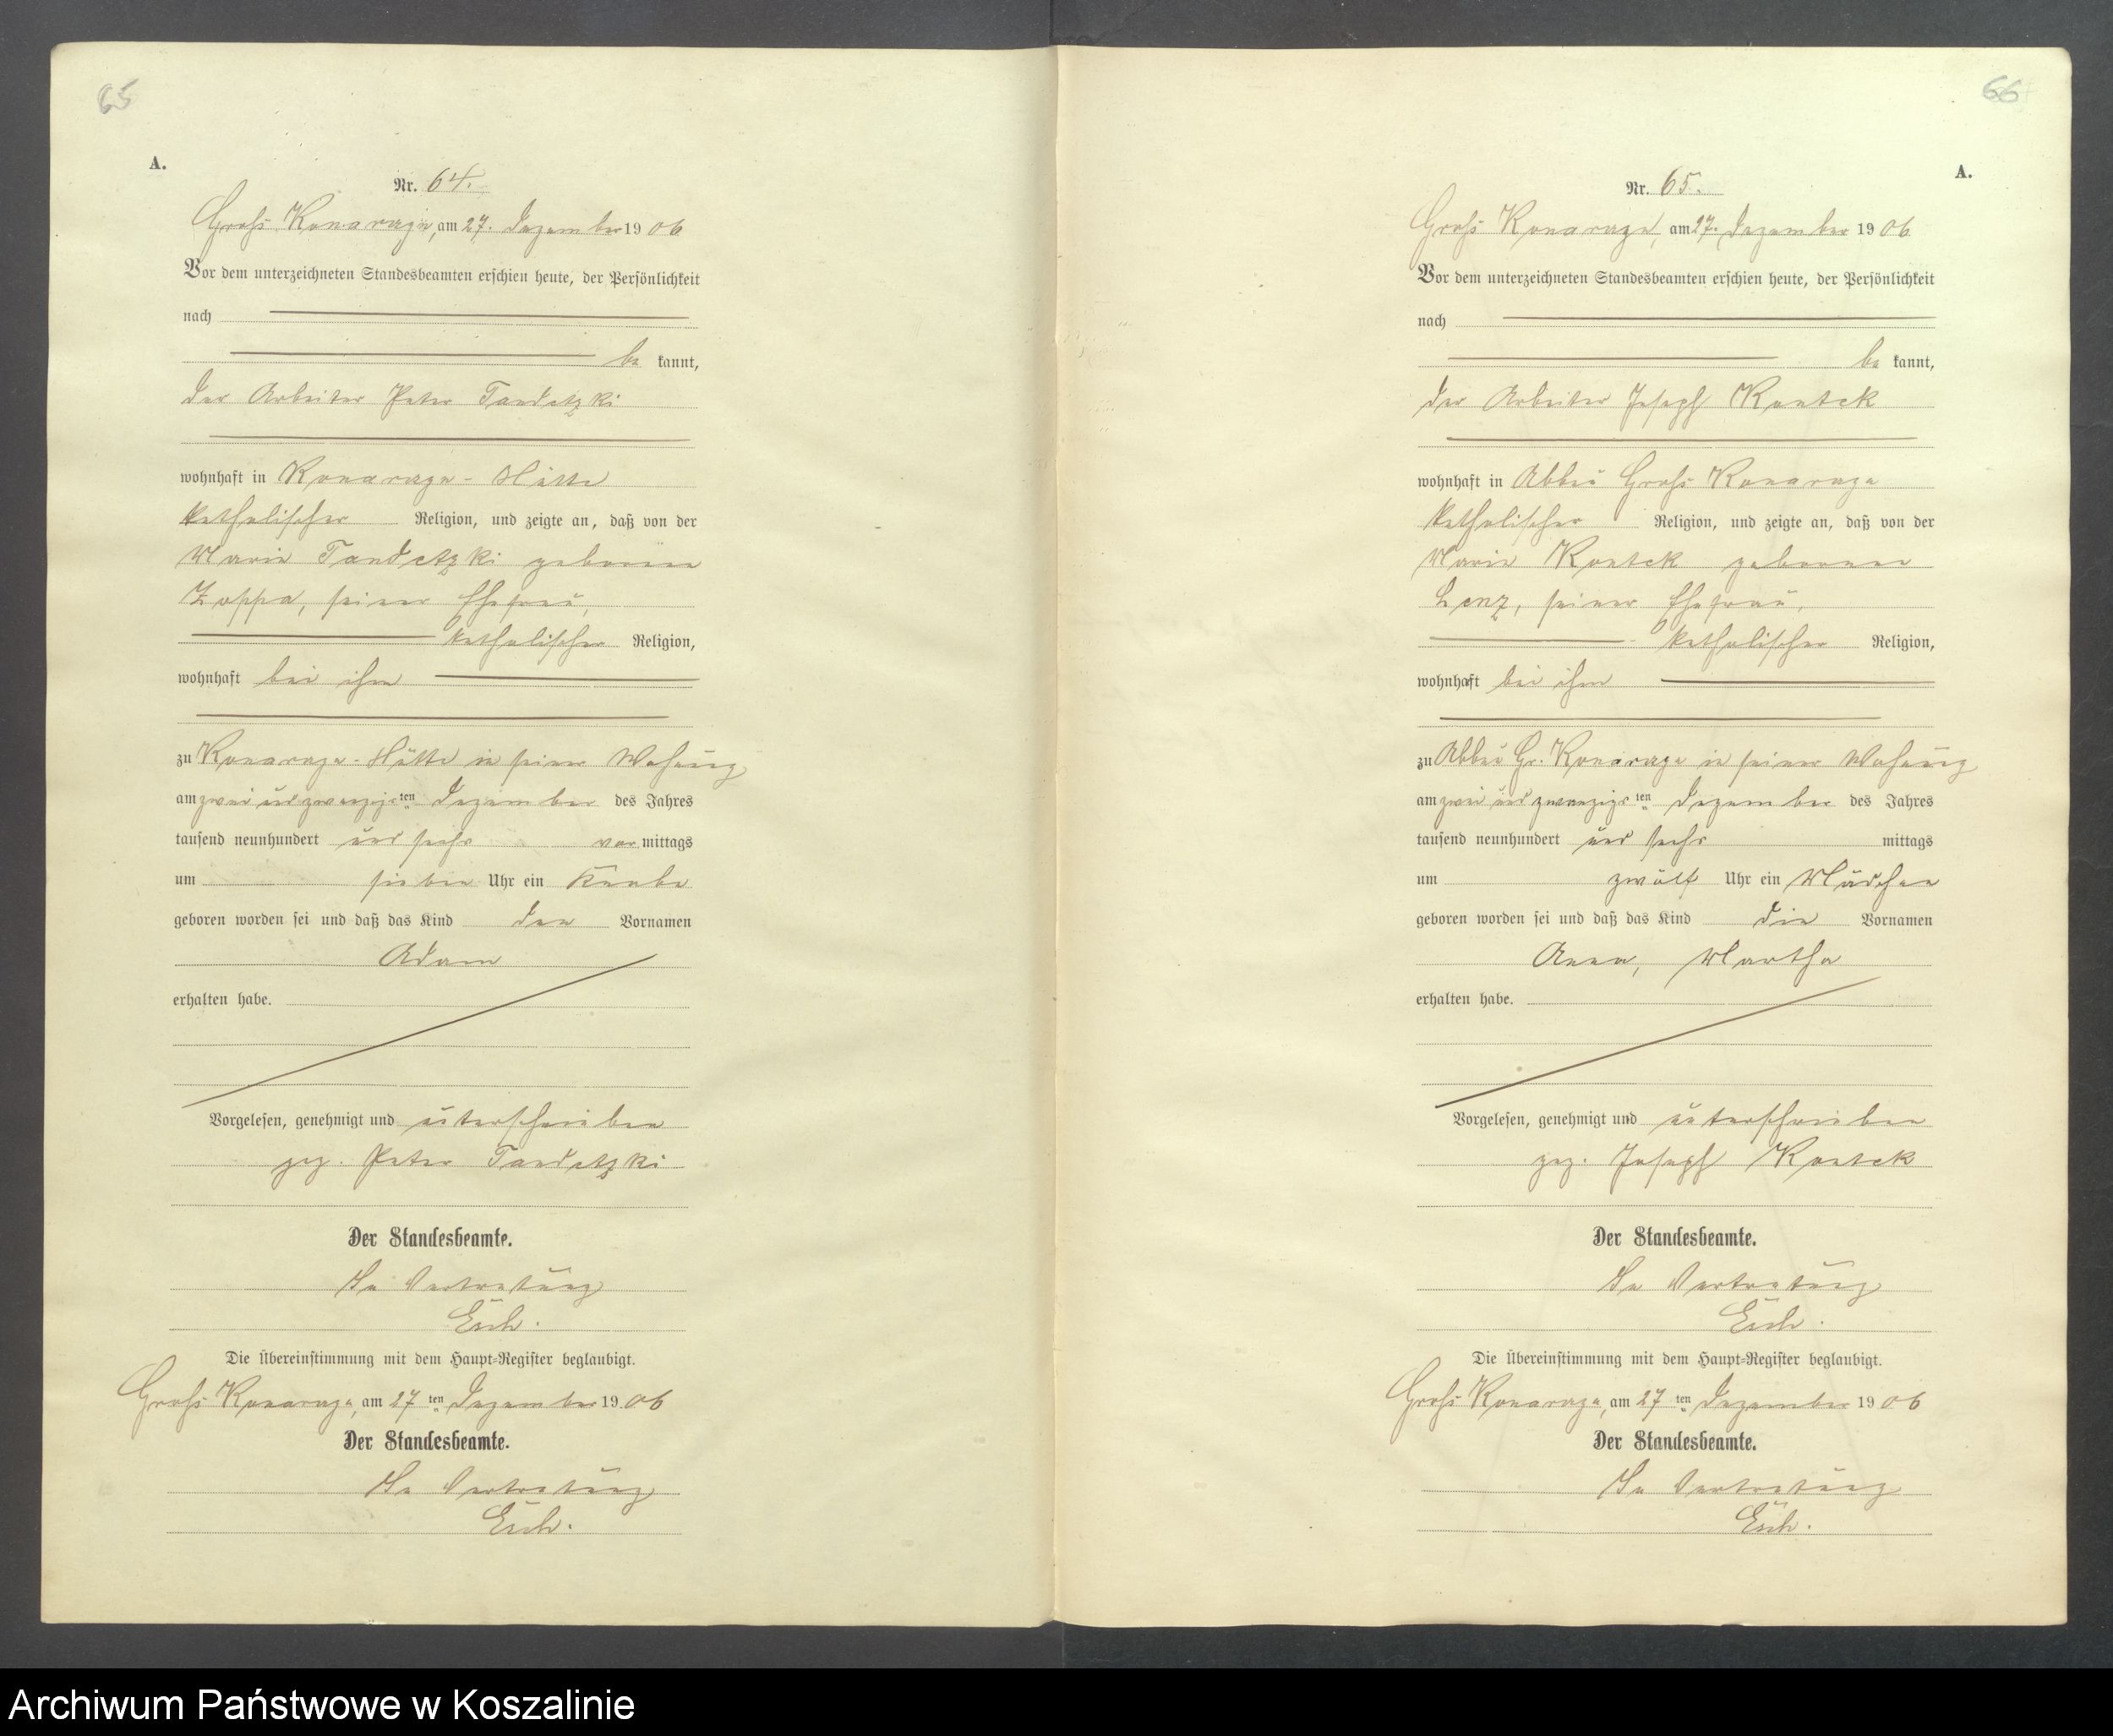 65
A.
Nr. 64.
Groß Konarzyn, am 27. Dezember 1906
Vor dem unterzeichneten Standesbeamten erschien heute, der Persönlichkeit
nach
be kannt,
der Arbeiter Peter Tandetzki
wohnhaft in Konarzyn-Hütte
katholischer Religion, und zeigte an, daß von der
Marie Tandetzki geborene
Zoppa, seiner Ehefrau,
katholischer Religion,
wohnhaft bei ihm
zu Konarzyn-Hütte in seiner Wohnung
am zwei und zwanzigsten Dezember des Jahres
tausend neunhundert und sechs vor mittags
um sieben Uhr ein Knabe
geboren worden sei und daß das Kind den Vornamen
Adam
erhalten habe.
Vorgelesen, genehmigt und unterschrieben
gez. Peter Tandetzki
Der Standesbeamte.
In Vertretung
Esch.
Die Übereinstimmung mit dem Haupt-Register beglaubigt.
Groß Konarzyn, am 27ten Dezember 1906
Der Standesbeamte.
In Vertretung
Esch.
66
A.
Nr. 65.
Groß Konarzyn, am 27. Dezember 1906
Vor dem unterzeichneten Standesbeamten erschien heute, der Persönlichkeit
nach
be kannt,
der Arbeiter Joseph Kontek
wohnhaft in Abbau Groß Konarzyn
katholischer Religion, und zeigte an, daß von der
Marie Kontek geborenen
Lenz, seiner Ehefrau,
katholischer Religion,
wohnhaft bei ihm
zu Abbau Gr. Konarzyn in seiner Wohnung
am zwei und zwanzigsten Dezember des Jahres
tausend neunhundert und sechs mittags
um zwölf Uhr ein Mädchen
geboren worden sei und daß das Kind die Vornamen
Anna, Martha
erhalten habe.
Vorgelesen, genehmigt und unterschrieben
gez. Joseph Kontek
Der Standesbeamte.
In Vertretung
Esch.
Die Übereinstimmung mit dem Haupt-Register beglaubigt.
Groß Konarzyn, am 27ten Dezember 1906
Der Standesbeamte.
In Vertretung
Esch.
Archiwum Państwowe w Koszalinie